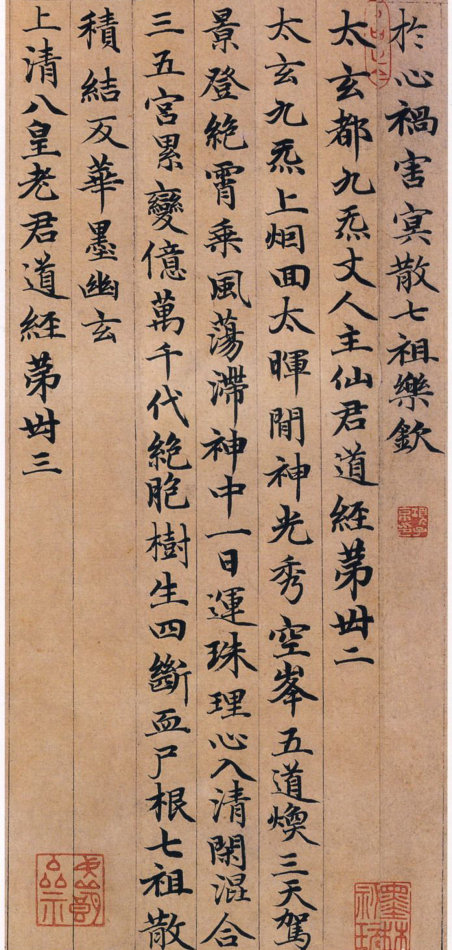 於心禍害冥散七祖樂欽
太玄都九炁丈人主仙君道經第卌二
太玄九炁上烟回太暉開神光秀空峯五道煥三天駕
景登絕霄乘風蕩滯神中一日運珠理心入清閑混合
三五宮累變億萬千代絕胞樹生四斷血尸根七祖散
積結反華墨幽玄
上清八皇老君道經第卌三